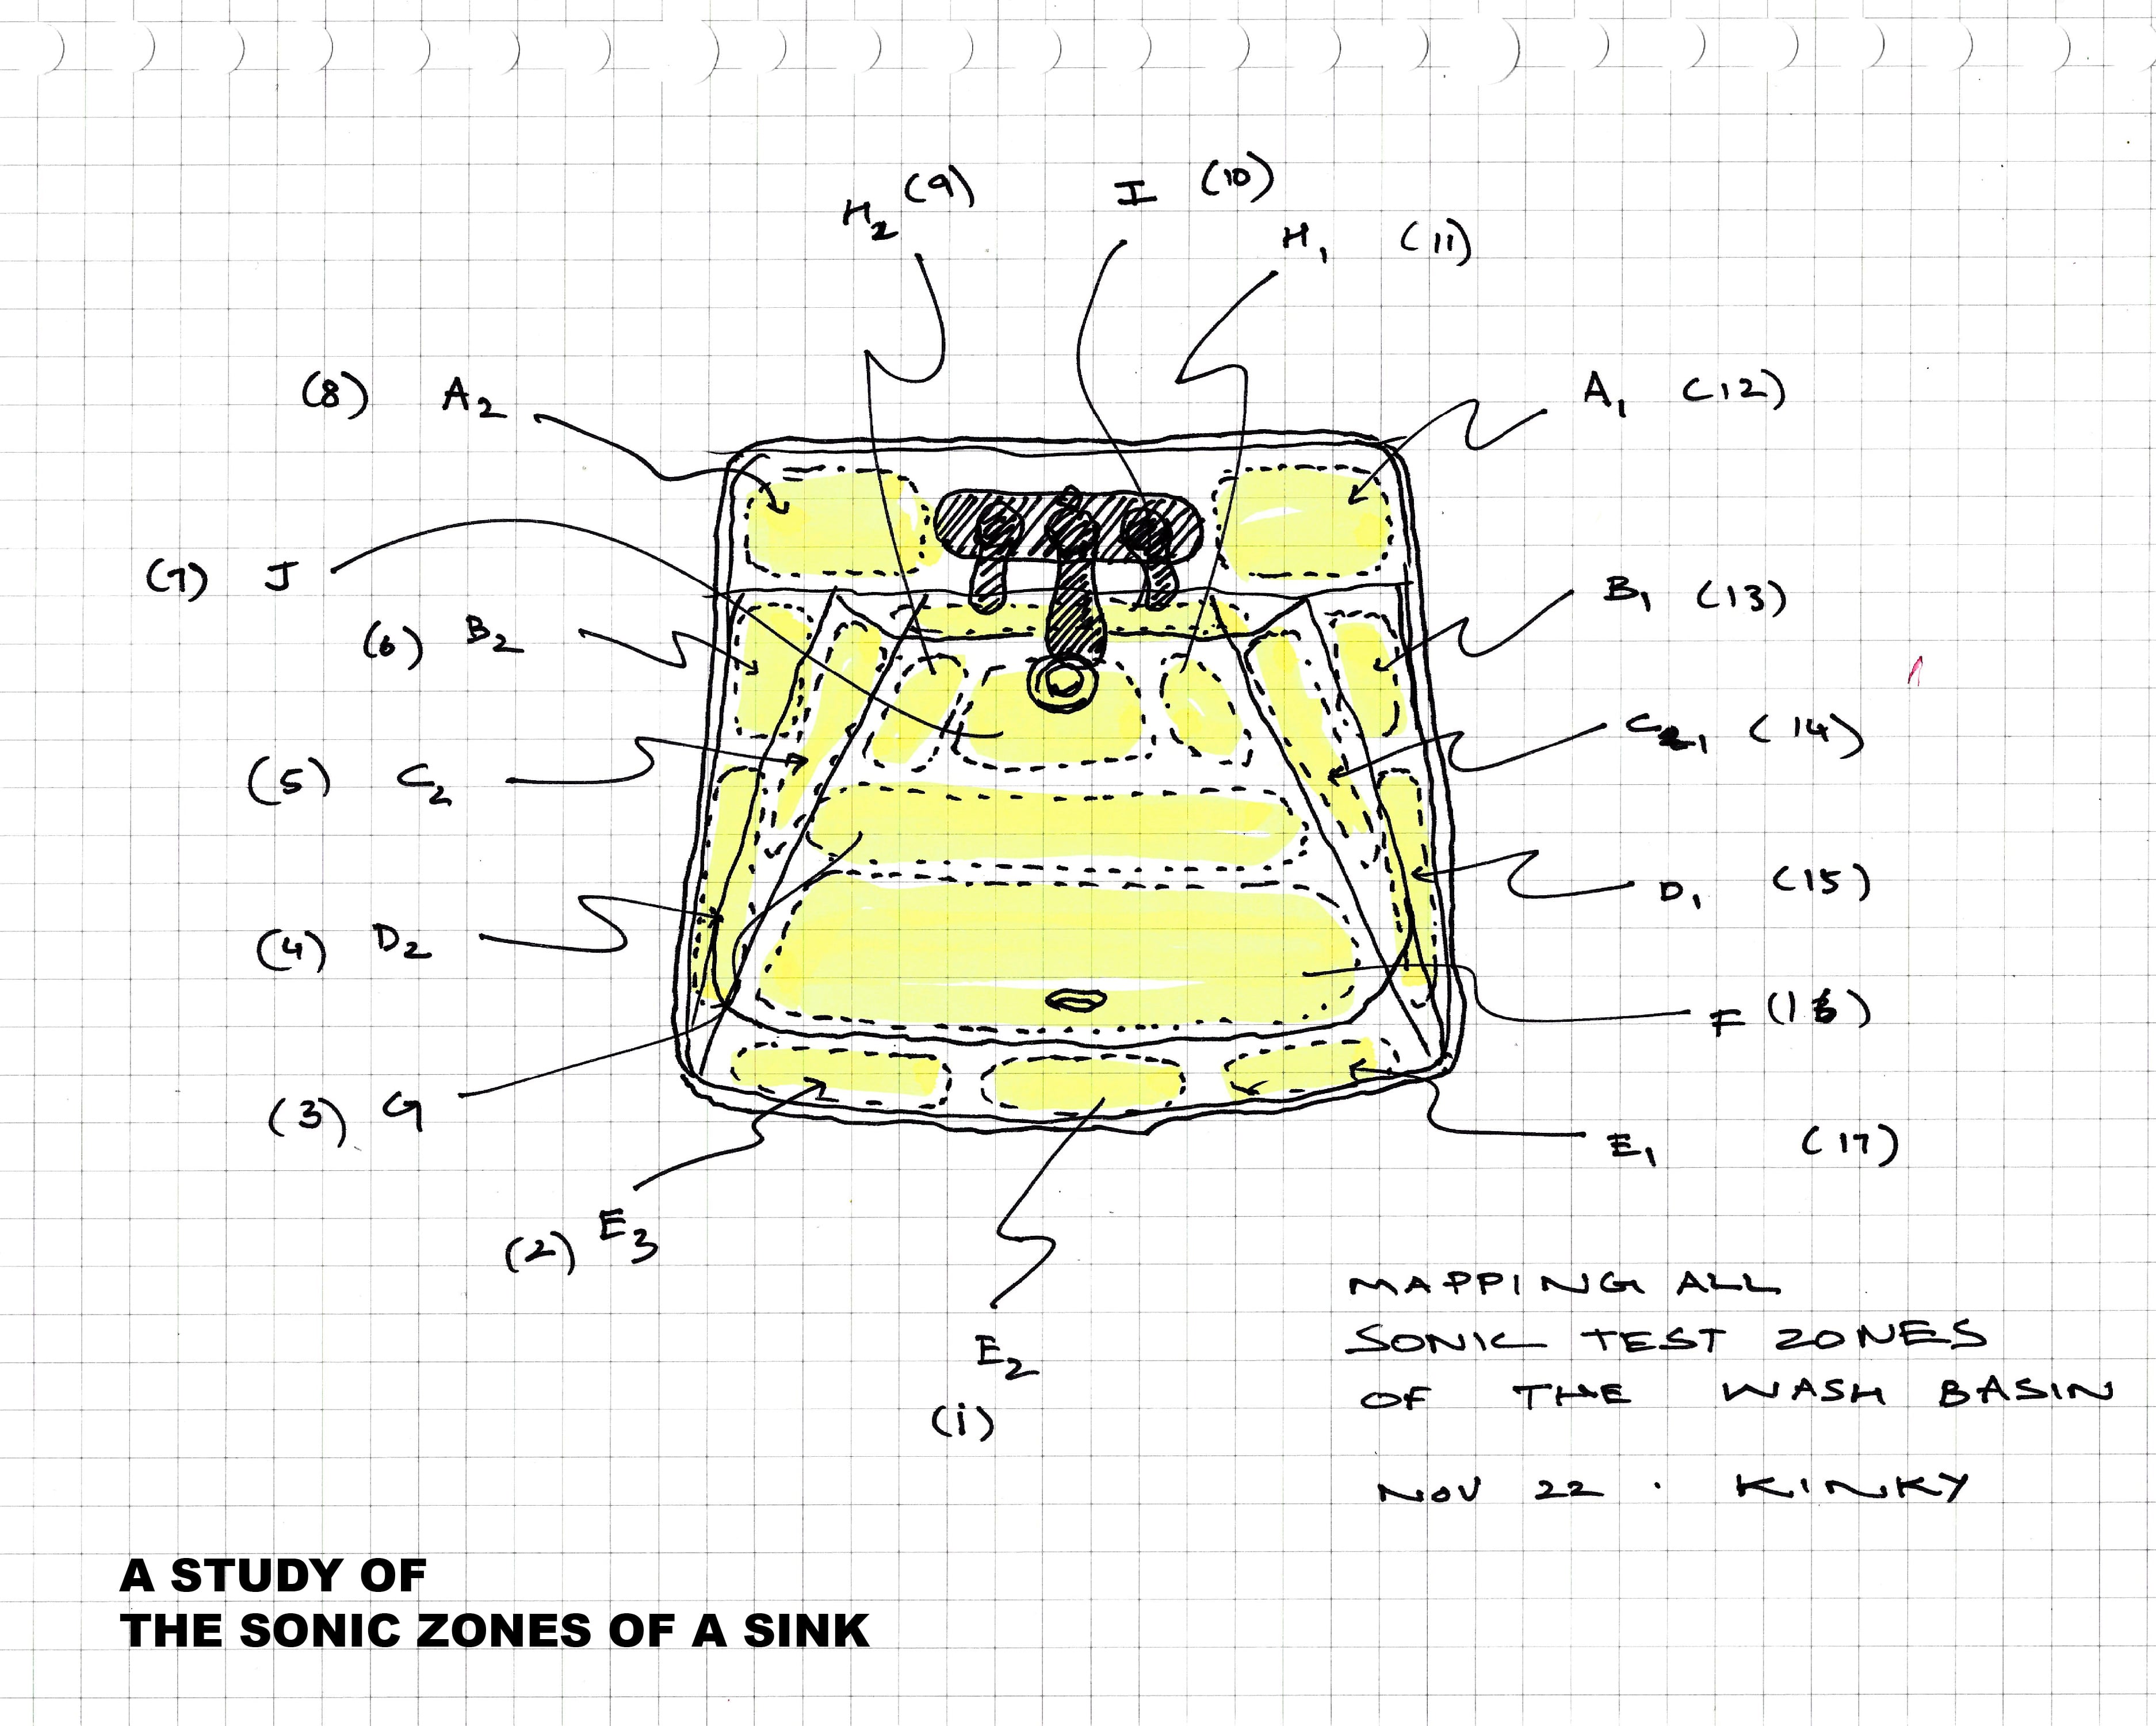 H2 (9)
I (10)
H1 (11)
(8) A2
A1 (12)
(7) J
B1 (13)
(6) B2
C1 (14)
(5) C2
D1 (15)
(4) D2
F (16)
(3) G
E1 (17)
(2) E3
E2
(1)
MAPPING ALL
SONIC TEST ZONES
OF THE WASH BASIN
NOV 22 . KINKY
A STUDY OF
THE SONIC ZONES OF A SINK